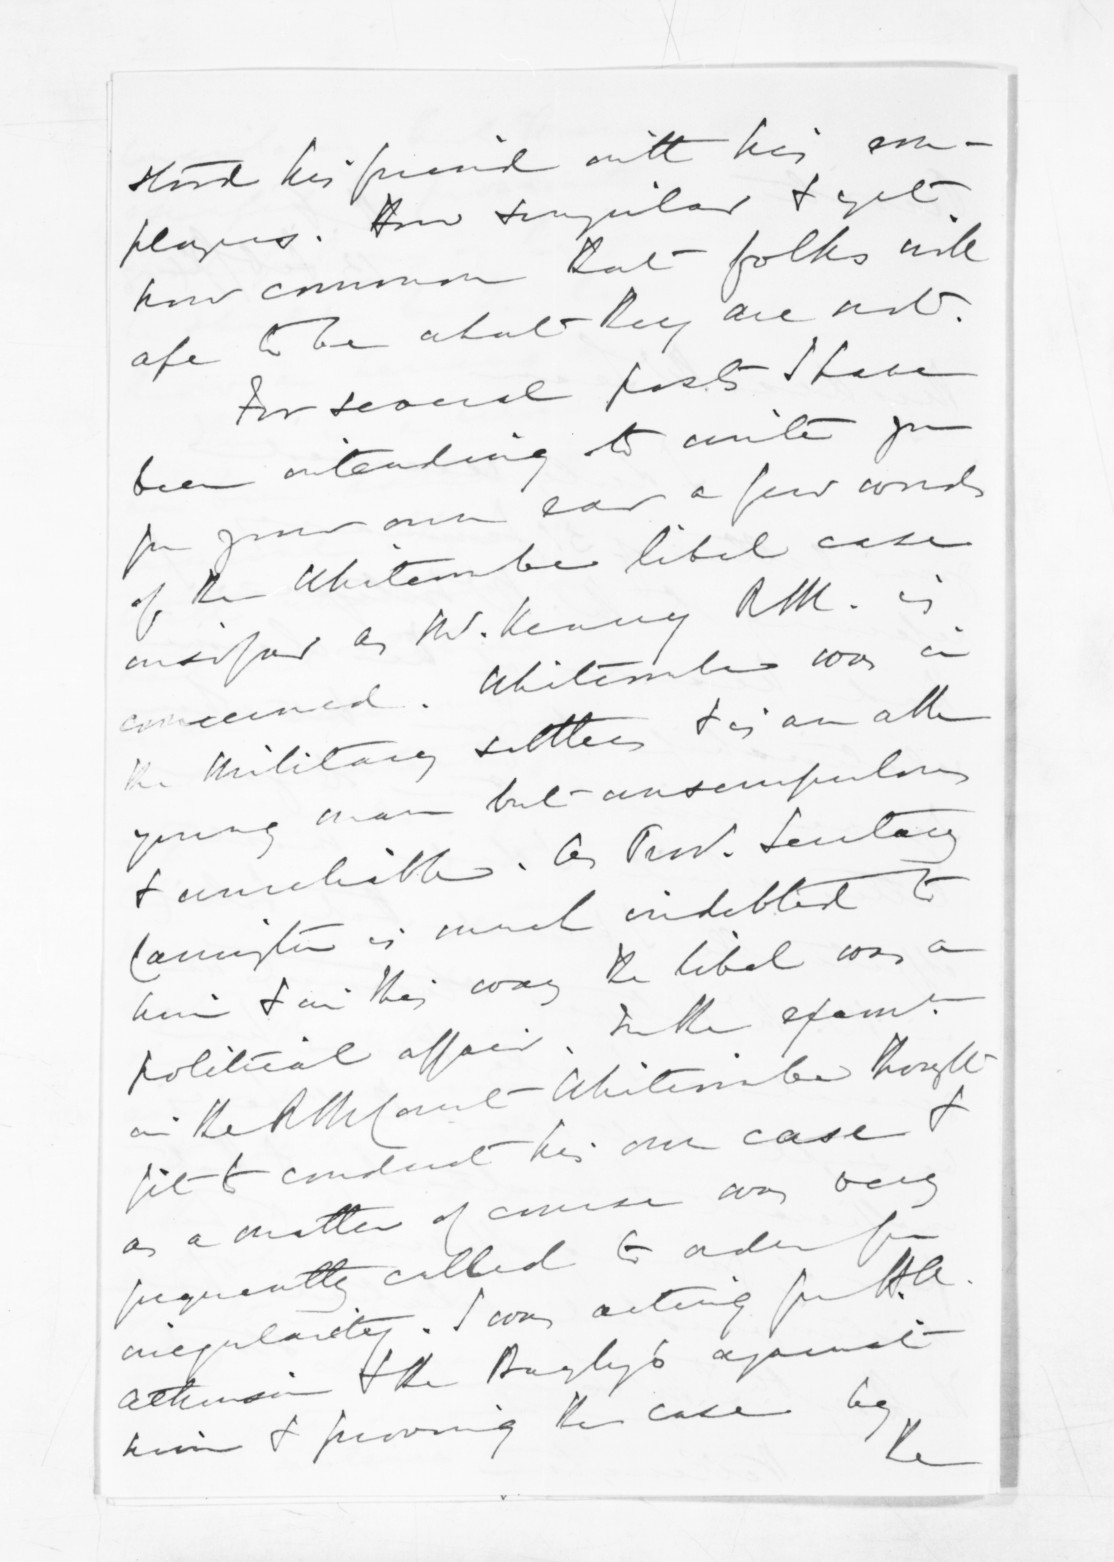 stood his friend with his em-
ployers. How singular & yet
how common that folks will
ape to be what they are not.
For several posts I have
been intending to write you
for your own ear a few words
of the Whitcombe libel case
insofar as Mr. Kenny R.M. is
concerned. Whitcombe was in
the Military settlers & is an able
young man but unscrupulous
& unreliable. As Prov. Secretary
Carrington is much indebted to
him & in this way the libel was a
political affair. In the examt.
in the RM Court Whitcombe thought
fit to conduct his own case &
as a matter of course was very
frequently called to order for
irregularity. I was acting for H.A.
Atkinson & the Bayly's against
him & proving the case by
the